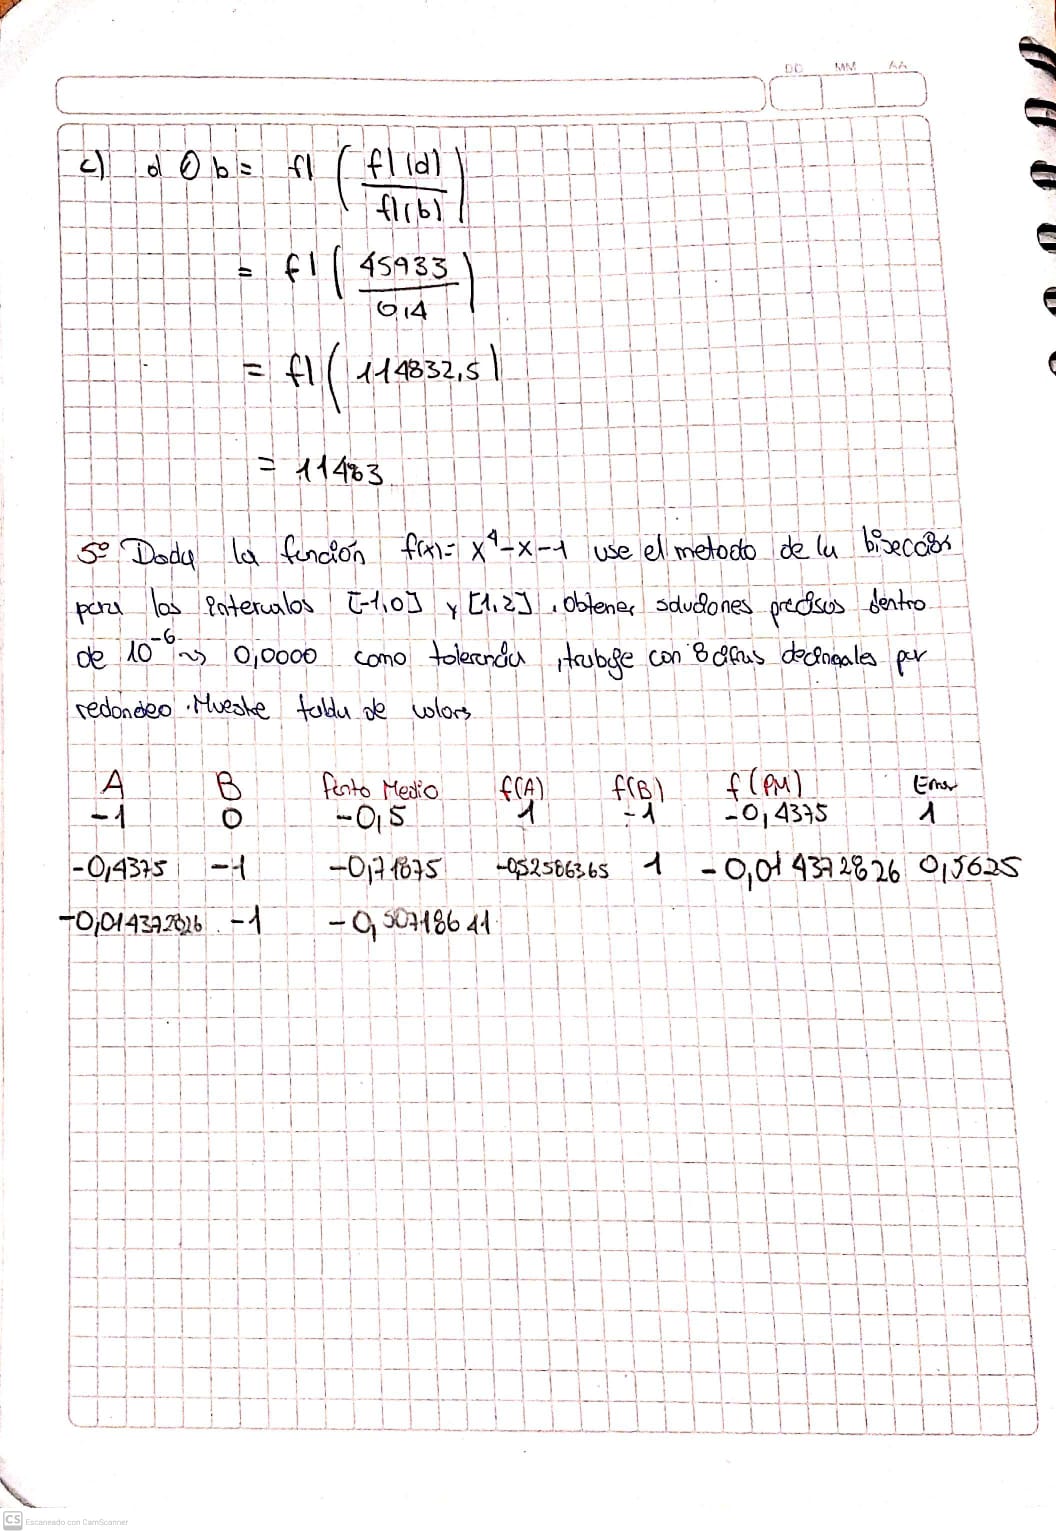 DD MM AA
c) d ⊘ b = fl ( fl(d) / fl(b) )
= fl ( 45933 / 0,4 )
= fl ( 114832,5 )
= 11483
5º Dada la función f(x) = x⁴-x-1 use el metodo de la bisección
para los intervalos [-1,0] y [1,2]. Obtener soluciones precisas dentro
de 10⁻⁶ ~> 0,0000 como tolerancia, trabaje con 8 cifras decimales por
redondeo. Muestre tabla de valors
A B Punto Medio f(A) f(B) f(PM) Error
-1 0 -0,5 1 -1 -0,4375 1
-0,4375 -1 -0,71875 -0,52586365 1 -0,014372826 0,5625
-0,014372826 -1 -0,50718641
CS Escaneado con CamScanner